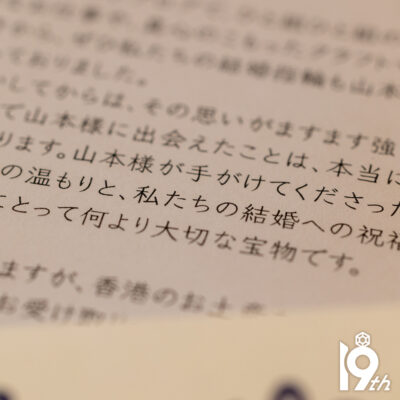 から、ぜひ私たちの結婚指輪も山本
ておりました。
してからは、その思いがますます強
て山本様に出会えたことは、本当に
ります。山本様が手がけてくださった
の温もりと、私たちの結婚への祝福
とって何より大切な宝物です。
ますが、香港のお土産
お受け取り
19th